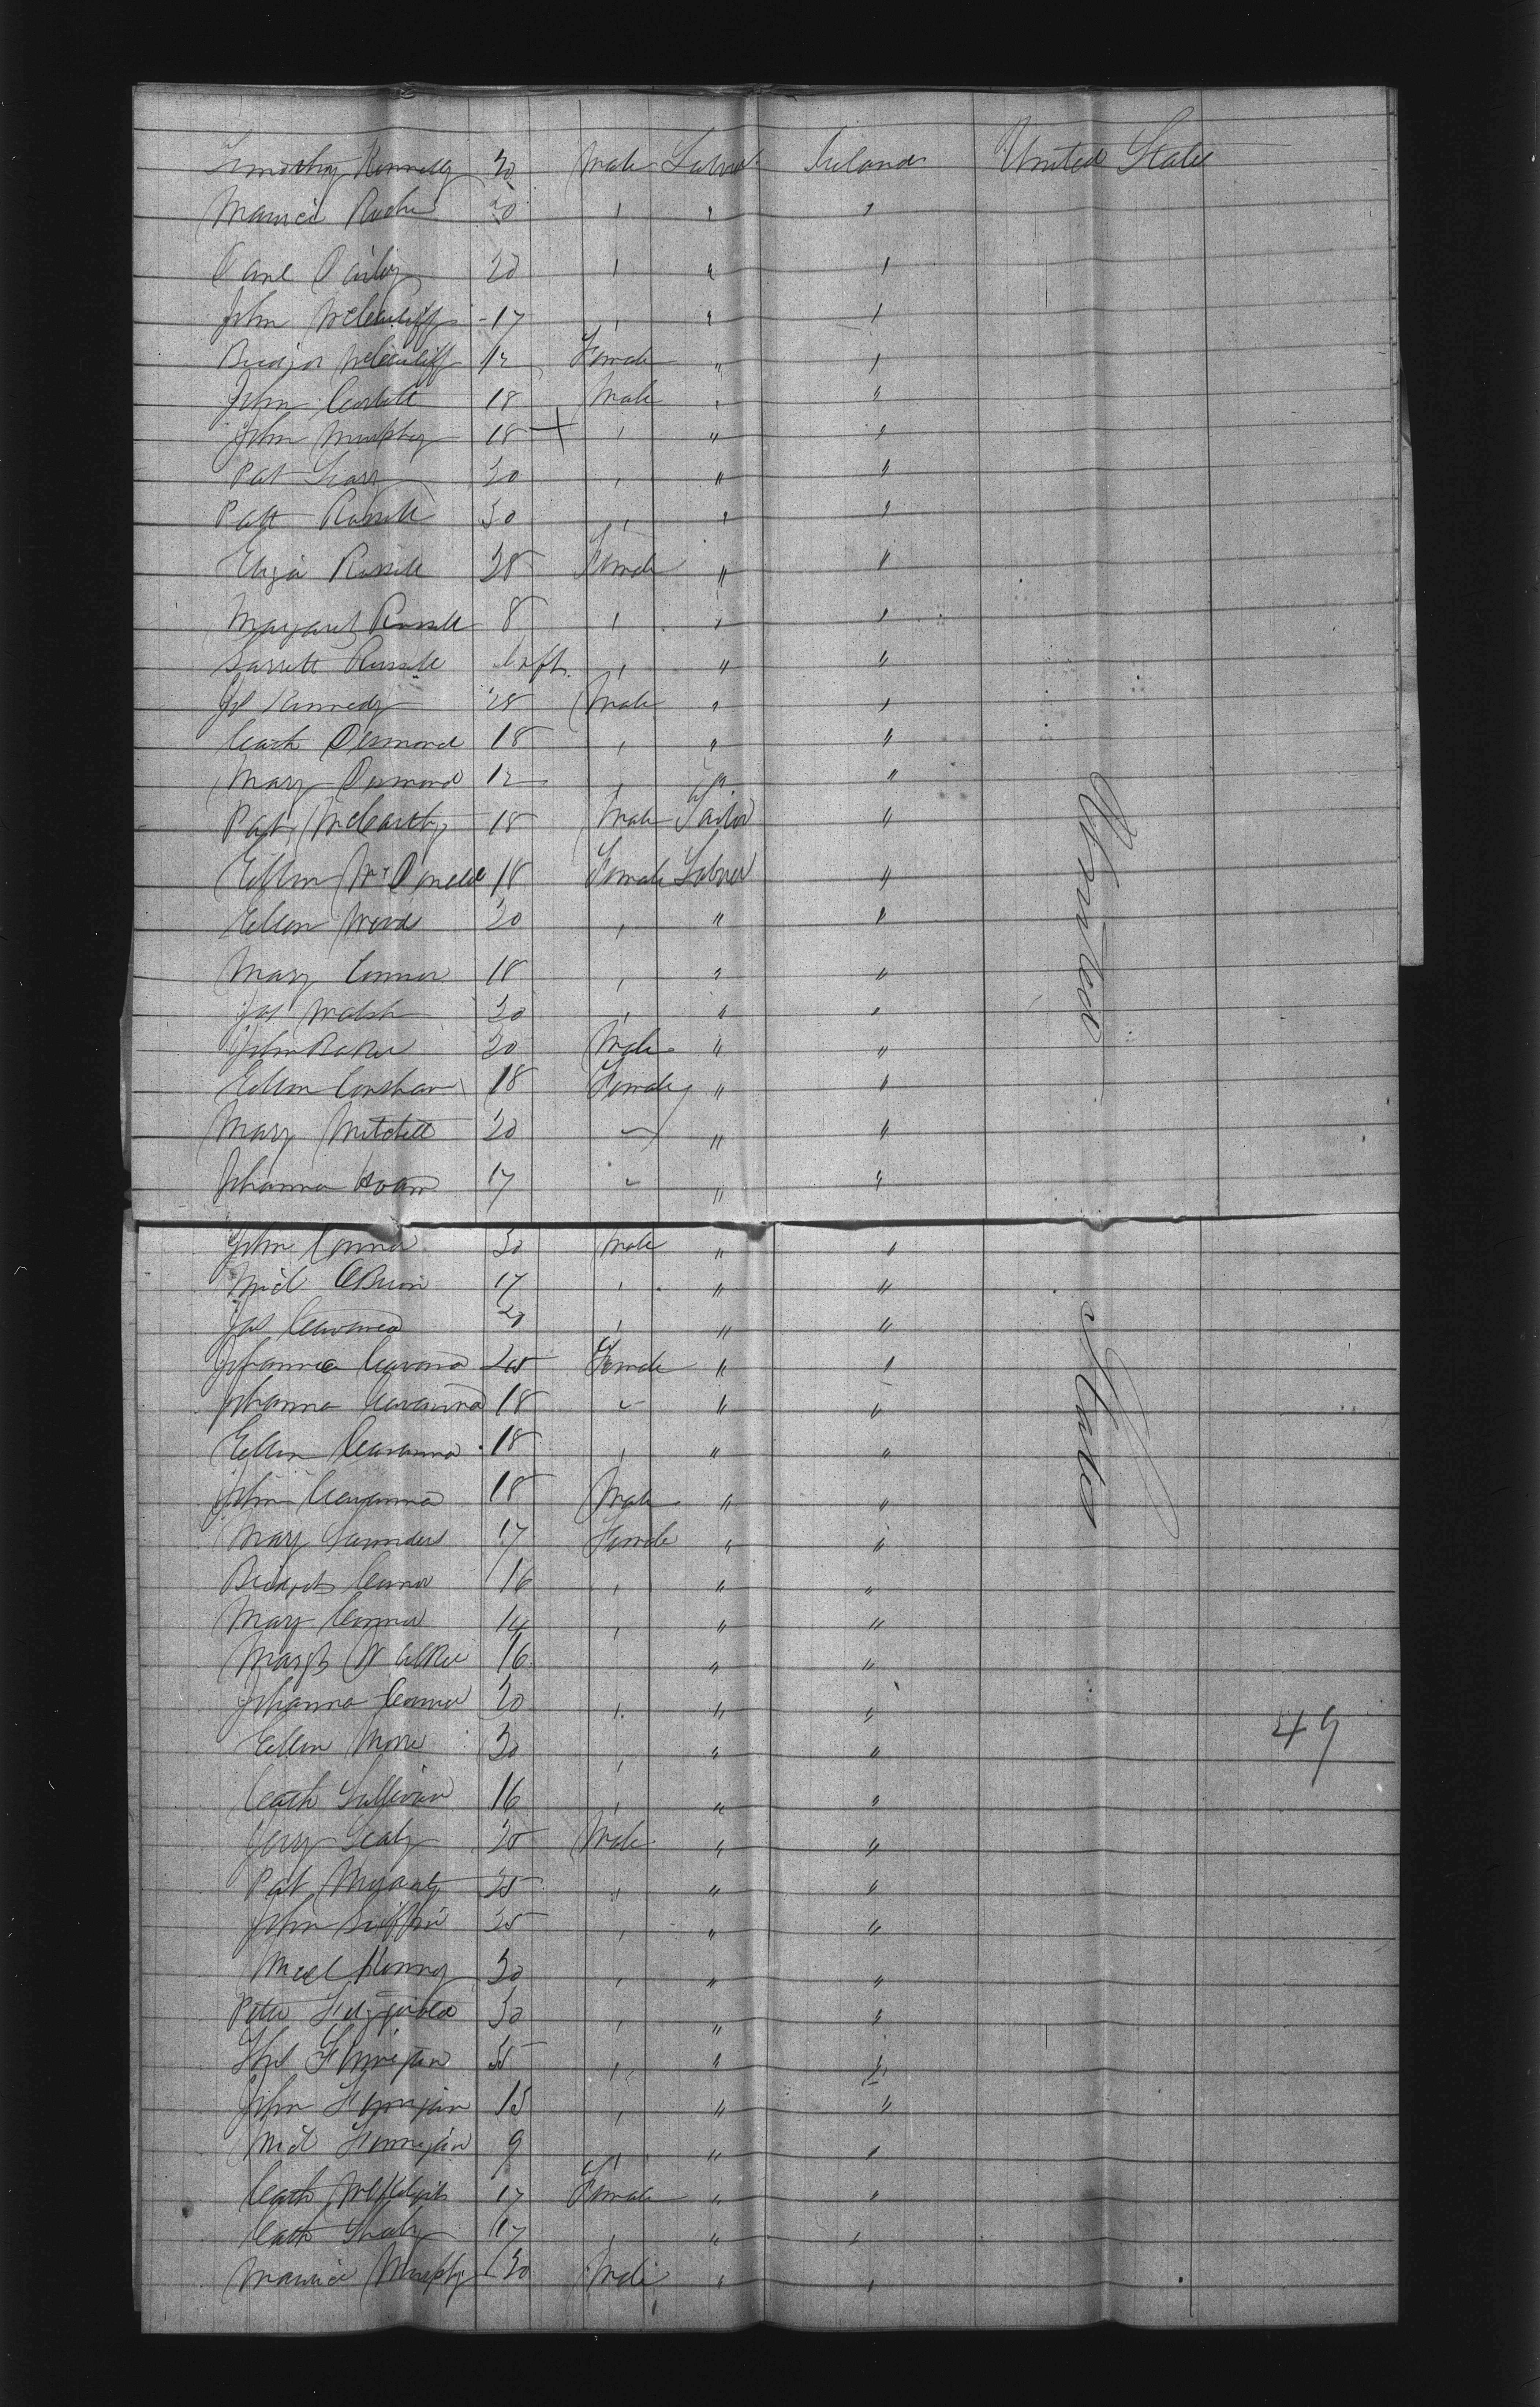 Timothy Kennelly 30 Male Labour Ireland United States
Maurice Roche 20 " " "
Dailey 20 " " "
John McCauliff 17 " " "
Bridget McCauliff 12 Female " "
John Corbett 18 Male " "
John Murphy 18 + " " "
Pat 30 " " "
Patt Russell 30 " " "
Eliza Russell 28 Female " "
Margaret Russell 8 " " "
Garrett Russell Inft " " "
Kennedy 28 Male " "
Cath Desmond 18 " " "
Mary Desmond 12 " " "
Pat McCarthy 18 Male Tailor "
Ellen McDonald 18 Female Labour "
Ellen Woods 20 " " "
Mary Connor 18 " " "
Jas Walsh 20 " " "
John Baker 20 Male " "
Ellen 18 Female " "
Mary Mitchell 20 " " "
Johanna 17 " " "
John Connor 30 Male " "
Micl OBrien 17 " " "
Jas Cavanna 20 " " "
Johanna Cavanna 20 Female " "
Johanna Cavanna 18 " " "
Ellen Cavanna 18 " " "
John Cavanna 18 Male " "
Mary Saunders 17 Female " "
Bridget Connor 16 " " "
Mary Connor 14 " " "
Margt 16 " "
Johanna Connor 20 " " "
Ellen 30 " " "
Cath Sullivan 16 " " "
Jerry Leahy 20 Male " "
Pat 25 " " "
John Griffin 25 " " "
Micl Kenny 30 " " "
Peter Fitzgerald 30 " " "
Thos Finnigan 35 " " "
John Finnigan 15 " " "
Micl Finnigan 9 " " "
Cath 17 Female " "
Cath 17 " " "
Maurice Murphy 30 Male " "
United States
49